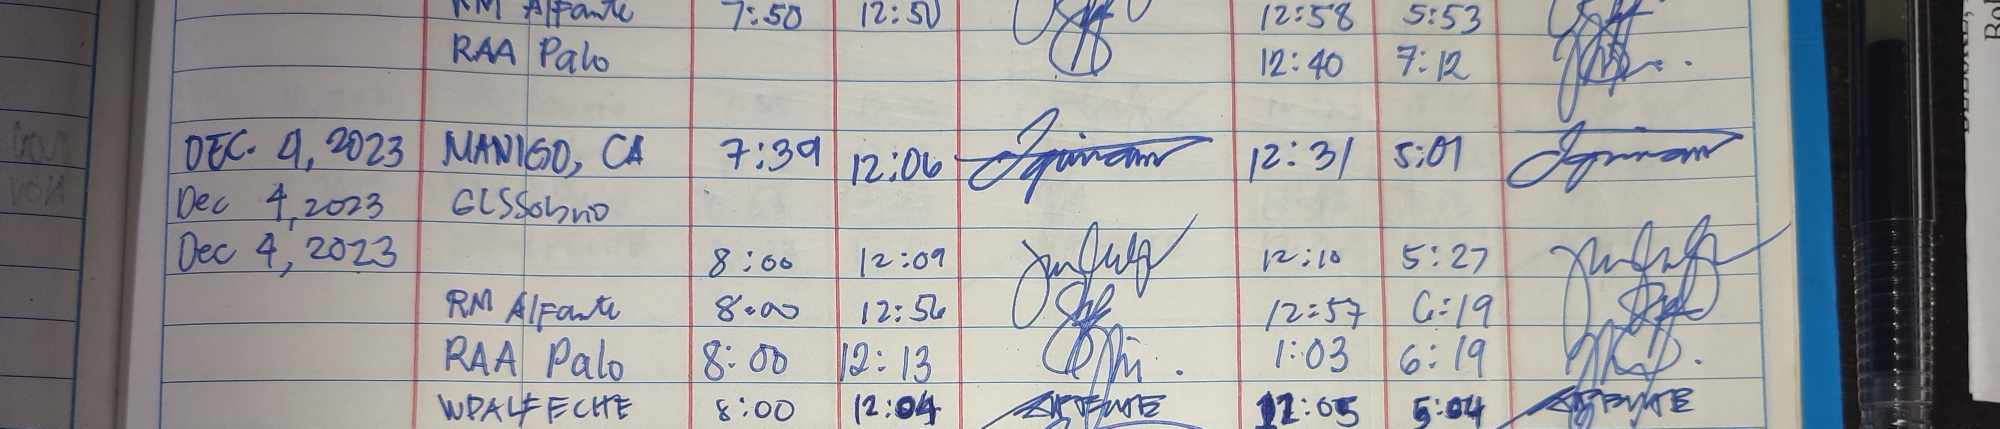 RM Alfante 7:50 12:50 12:58 5:53
RAA Palo 12:40 7:12
DEC. 4, 2023 MANIGO, CA 7:39 12:06 12:31 5:01
Dec 4, 2023 GLSSobrio
Dec 4, 2023 8:00 12:09 12:10 5:27
RM Alfante 8:00 12:56 12:57 6:19
RAA Palo 8:00 12:13 1:03 6:19
WPALFECHE 8:00 12:04 12:05 5:04